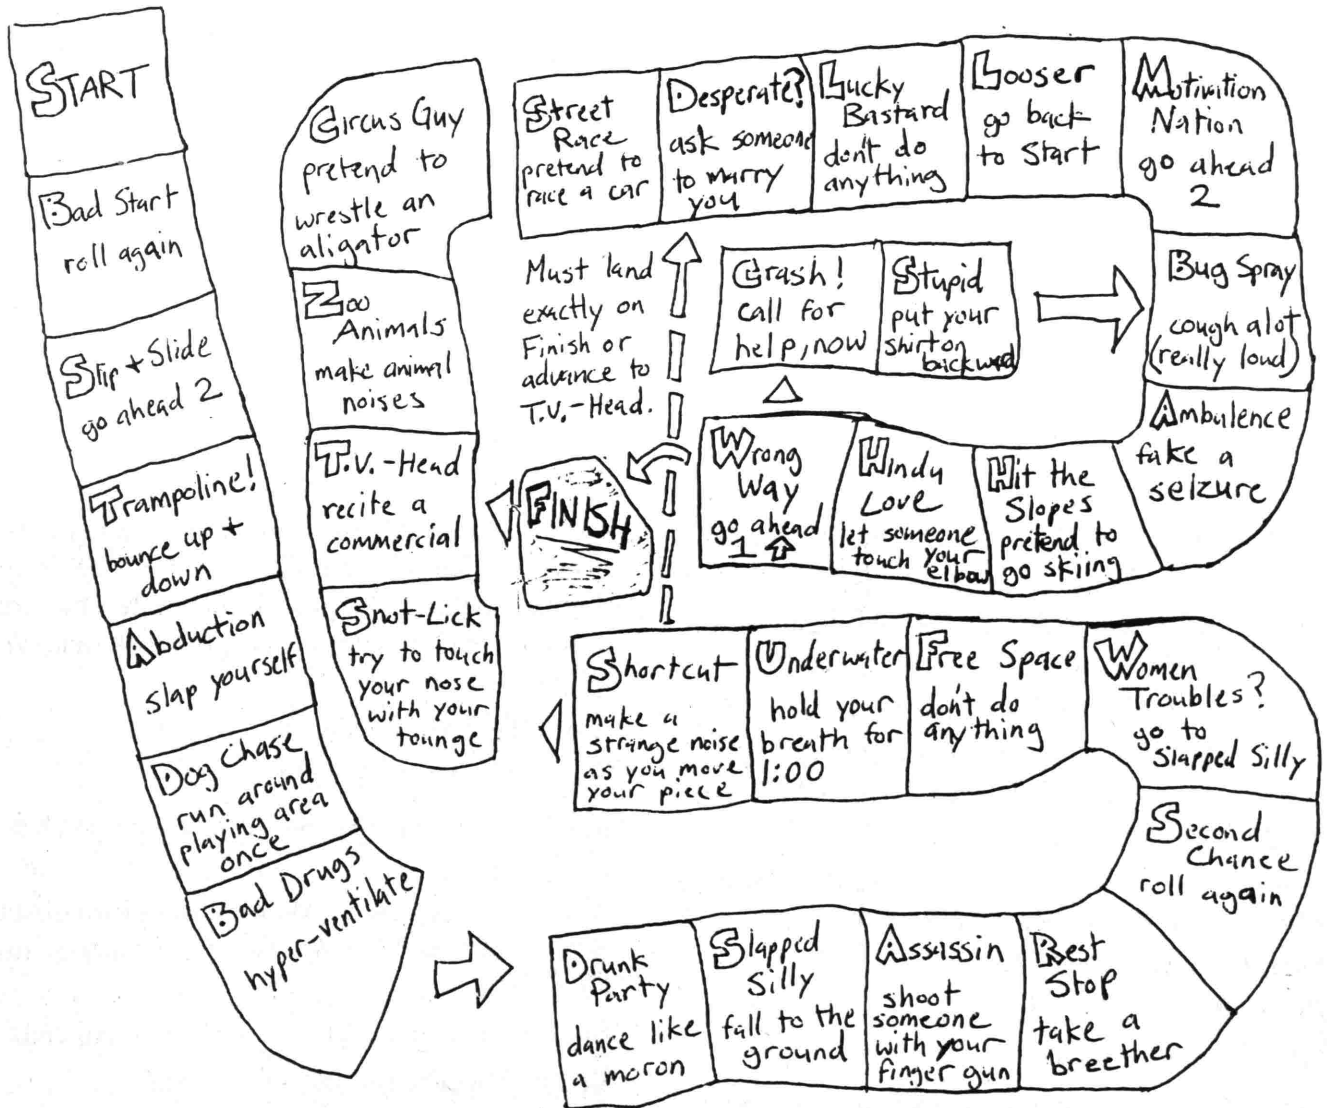 START
Bad Start
roll again
Slip + Slide
go ahead 2
Trampoline!
bounce up +
down
Abduction
slap yourself
Dog Chase
run around
playing area
once
Bad Drugs
hyper-ventilate
Drunk
Party
dance like
a moron
Slapped
Silly
fall to the
ground
Assassin
shoot
someone
with your
finger gun
Rest
Stop
take a
breether
Second
Chance
roll again
Women
Troubles?
go to
Slapped Silly
Free Space
don't do
anything
Underwater
hold your
breath for
1:00
Shortcut
make a
strange noise
as you move
your piece
Snot-Lick
try to touch
your nose
with your
tounge
T.V.-Head
recite a
commercial
Zoo
Animals
make animal
noises
Circus Guy
pretend to
wrestle an
aligator
Street
Race
pretend to
race a car
Desperate?
ask someone
to marry
you
Lucky
Bastard
don't do
anything
Looser
go back
to Start
Motivition
Nation
go ahead
2
Bug Spray
cough alot
(really loud)
Ambulence
fake a
seizure
Hit the
Slopes
pretend to
go skiing
Hindu
Love
let someone
touch your
elbow
Wrong
Way
go ahead
1
Crash!
call for
help, now
Stupid
put your
shirt on
backward
Must land
exactly on
Finish or
advance to
T.V.-Head.
FINISH